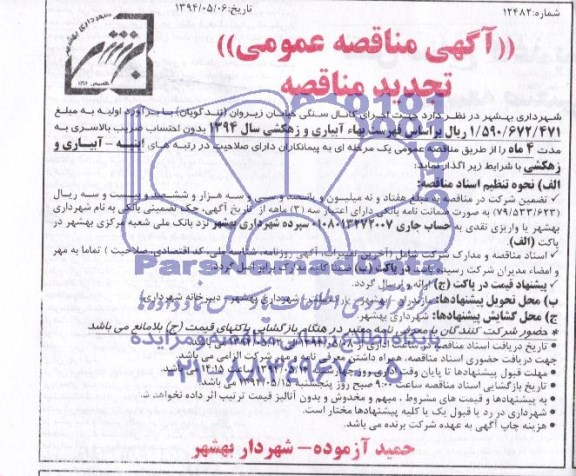 شماره: ۱۲۴۸۲
تاریخ: ۱۳۹۴/۰۵/۰۶
شهرداری بهشهر
((آگهی مناقصه عمومی))
تجدید مناقصه
شهرداری بهشهر در نظر دارد جهت اجرای کانال سنگی خیابان زیروان (تندگویان) با برآورد اولیه به مبلغ
۱/۵۹۰/۶۷۲/۴۷۱ ریال براساس فهرست بهاء آبیاری و زهکشی سال ۱۳۹۴ بدون احتساب ضریب بالاسری به
مدت ۴ ماه را از طریق مناقصه عمومی یک مرحله ای به پیمانکاران دارای صلاحیت در رتبه های ابنیه - آبیاری و
زهکشی با شرایط زیر اگذار نماید:
الف) نحوه تنظیم اسناد مناقصه:
تضمین شرکت در مناقصه به مبلغ هفتاد و نه میلیون و پانصد و سی و سه هزار و ششصد و بیست و سه ریال
(۷۹/۵۳۳/۶۲۳) به صورت ضمانت نامه بانکی دارای اعتبار سه (۳) ماهه از تاریخ آگهی، چک تضمینی بانکی به نام شهرداری
بهشهر یا واریزی نقدی به حساب جاری ۰۱۰۸۰۱۳۲۷۲۰۰۷ سپرده شهرداری بهشهر نزد بانک ملی شعبه مرکزی بهشهر در
پاکت (الف).
اسناد و مدارک شرکت شامل (آخرین تغییرات، آگهی روزنامه، شناسه ملی، کد اقتصادی، صلاحیت) تماما به مهر
و امضاء مدیران شرکت رسیده باشد در پاکت (ب)
پیشنهاد قیمت در پاکت (ج) ارائه و ارسال گردد.
ب) محل تحویل پیشنهادها: شهرداری بهشهر - دبیرخانه شهرداری
ج) محل گشایش پیشنهادها: شهرداری بهشهر.
* حضور شرکت کنندگان با معرفی نامه معتبر در هنگام بازگشایی پاکتهای قیمت (ج) بلامانع می باشد
تاریخ دریافت اسناد مناقصه
جهت دریافت حضوری اسناد مناقصه، همراه داشتن معرفی نامه و مهر شرکت الزامی می باشد.
مهلت قبول پیشنهادها تا پایان وقت اداری روز ساعت ۱۴:۱۵ می باشد.
تاریخ بازگشایی اسناد مناقصه ساعت ۹:۰۰ صبح روز پنجشنبه ۱۳۹۴/۰۵/۱۵ می باشد.
به پیشنهادها و قیمت های مشروط، مبهم و مخدوش و بدون آنالیز قیمت ترتیب اثر داده نخواهد شد.
شهرداری در رد یا قبول یک یا کلیه پیشنهادها مختار است.
هزینه چاپ آگهی به عهده شرکت برنده می باشد.
حمید آزموده - شهردار بهشهر
ParsNamadData
پایگاه اطلاع رسانی مناقصه و مزایده
۰۲۱-۸۸۳۴۹۶۷۰-۵